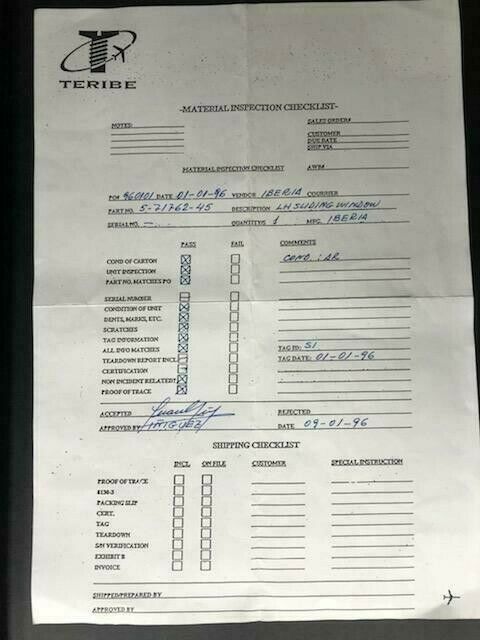 TERIBE
-MATERIAL INSPECTION CHECKLIST-
NOTES: SALES ORDER#
CUSTOMER
DUE DATE
SHIP VIA
MATERIAL INSPECTION CHECKLIST AWB#
PO# 960101 DATE 01-01-96 VENDOR IBERIA COURRIER
PART NO. 5-71762-45 DESCRIPTION LH SLIDING WINDOW
SERIAL NO. - QUANTITY/S 1 MFG. IBERIA
PASS FAIL COMMENTS
COND OF CARTON COND: AR
UNIT INSPECTION
PART NO. MATCHES PO
SERIAL NUMBER
CONDITION OF UNIT
DENTS, MARKS, ETC.
SCRATCHES
TAG INFORMATION TAG ID: SI
ALL INFO MATCHES TAG DATE: 01-01-96
TEARDOWN REPORT INCL
CERTIFICATION
NON INCIDENT RELATED?
PROOF OF TRACE
ACCEPTED REJECTED
APPROVED BY IÑIGUEZ DATE 09-01-96
SHIPPING CHECKLIST
INCL ON FILE CUSTOMER SPECIAL INSTRUCTION
PROOF OF TRACE
8130-3
PACKING SLIP
CERT.
TAG
TEARDOWN
S/N VERIFICATION
EXHIBIT B
INVOICE
SHIPPED/PREPARED BY
APPROVED BY